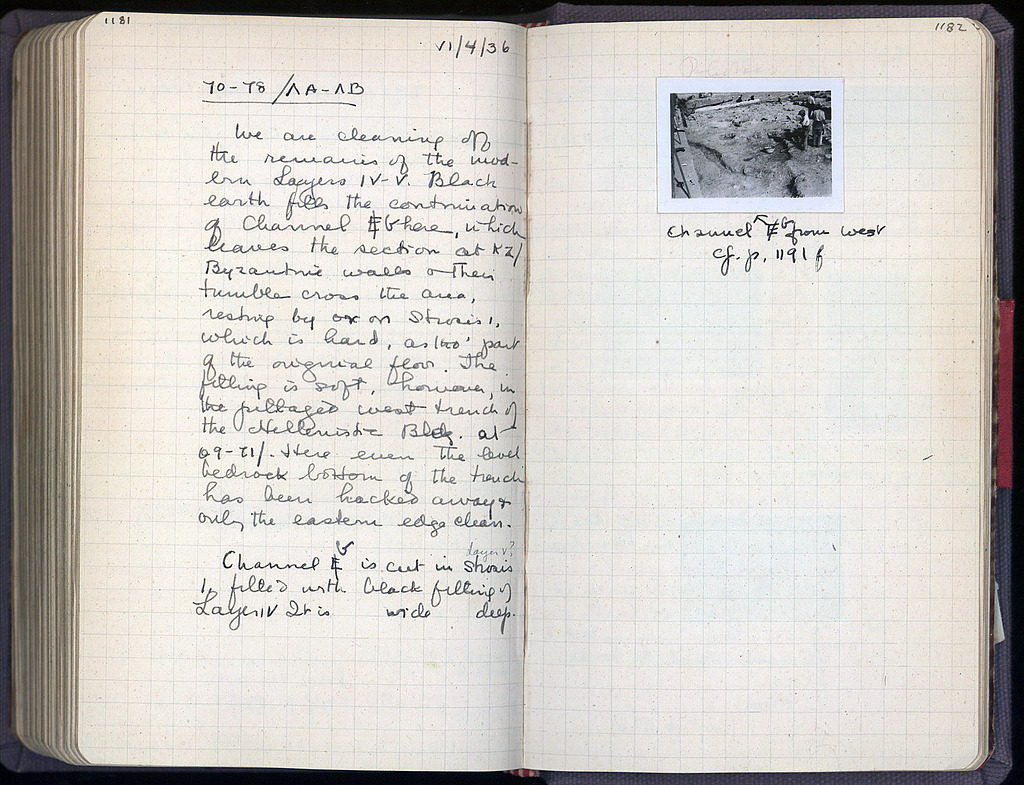 1181
VI/4/36
70-78/ΛA-ΛB
We are cleaning off
the remains of the mod-
ern Layers IV-V. Black
earth fills the continuation
of Channel G here, which
leaves the section at KZ/
Byzantine walls & their
tumble cross the area,
resting by or on Strosis 1,
which is hard, as too' part
of the original floor. The
filling is soft, however, in
the pillaged west trench of
the Hellenistic Bldg. at
69-71/. Here even the level
bedrock bottom of the trench
has been hacked away &
only the eastern edge clean.
layer V?
Channel G is cut in Strosis
1, filled with black filling of
Layer IV It is wide deep.
1182
Channel G from west
cf. p. 1191 f